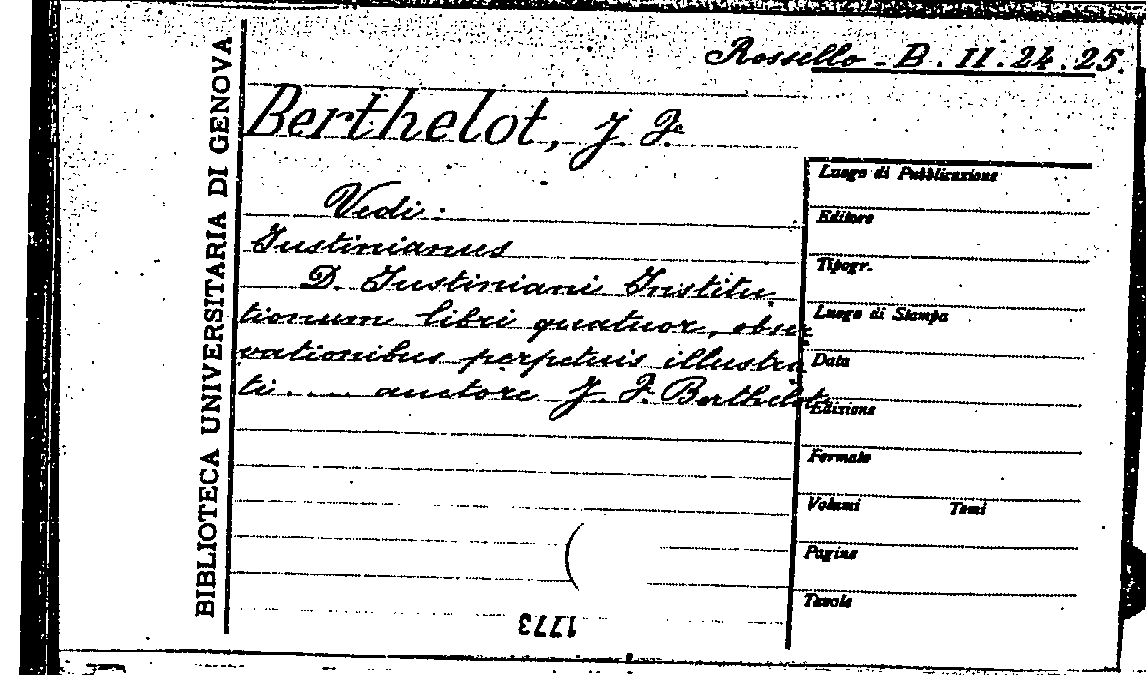 Rossello - B. II. 24. 25.
BIBLIOTECA UNIVERSITARIA DI GENOVA
Berthelot, J. F.
Vedi:
Justinianus
D. Justiniani Institu
tionum libri quatuor, obser
vationibus perpetuis illustra
ti .... auctore J. F. Berthelot
Luogo di Pubblicazione
Editore
Tipogr.
Luogo di Stampa
Data
Edizione
Formato
Volumi Tomi
Pagine
Tavole
1773